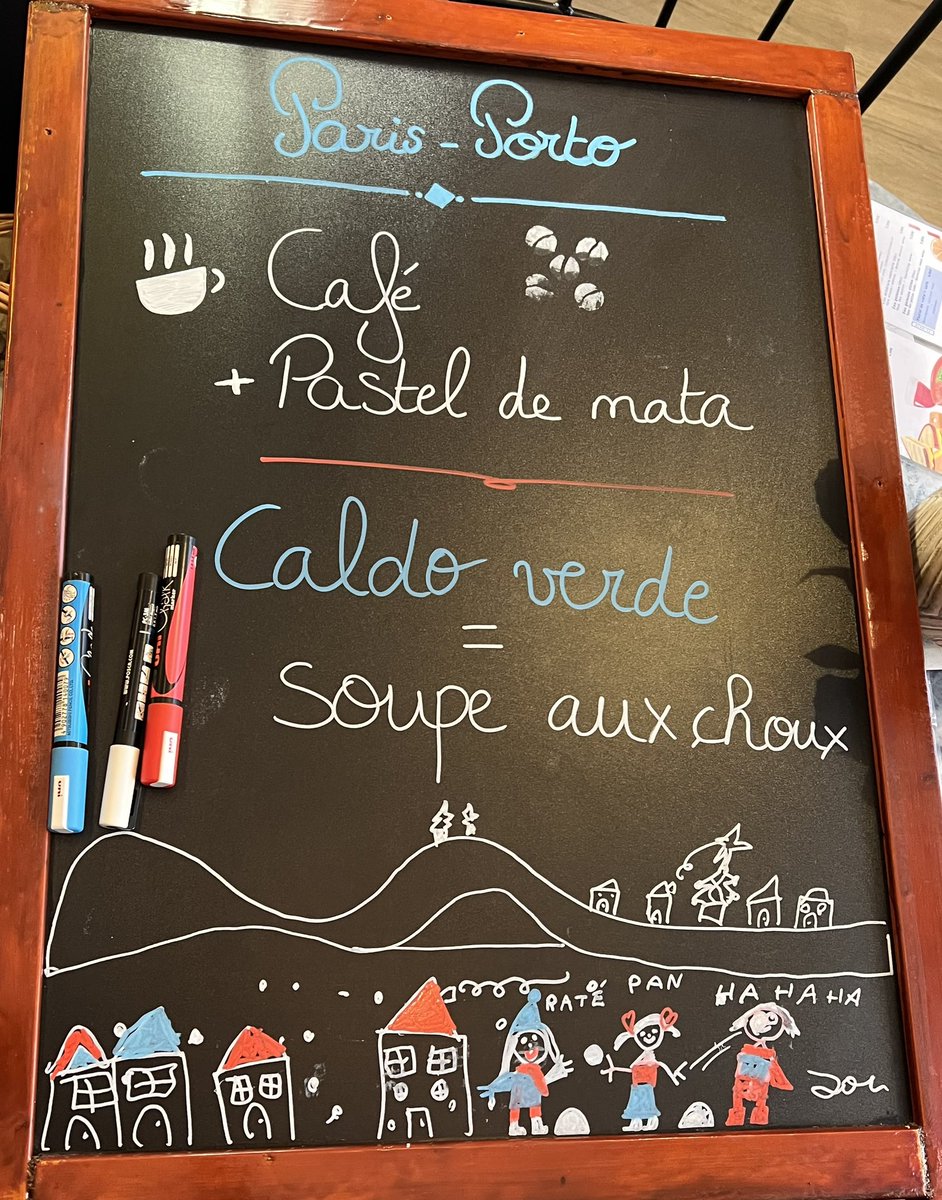 Paris - Porto
Café
+ Pastel de mata
Caldo verde
=
Soupe aux choux
RATÉ PAN HA HA HA
uni
uni